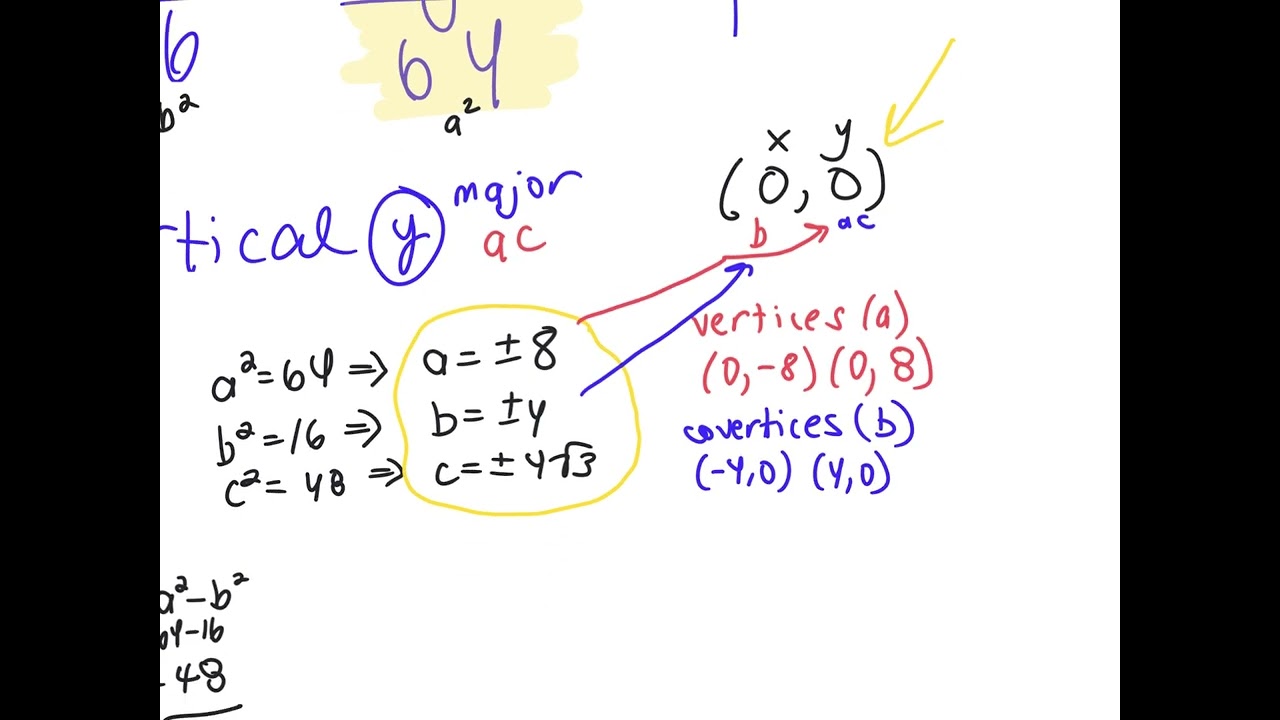 6
64
b²
a²
x y
(0, 0)
b ac
rtical y major
ac
a²=64 ⇒ a=±8
b²=16 ⇒ b=±4
c²=48 ⇒ c=±4√3
vertices (a)
(0,-8) (0, 8)
covertices (b)
(-4,0) (4,0)
a²-b²
64-16
48